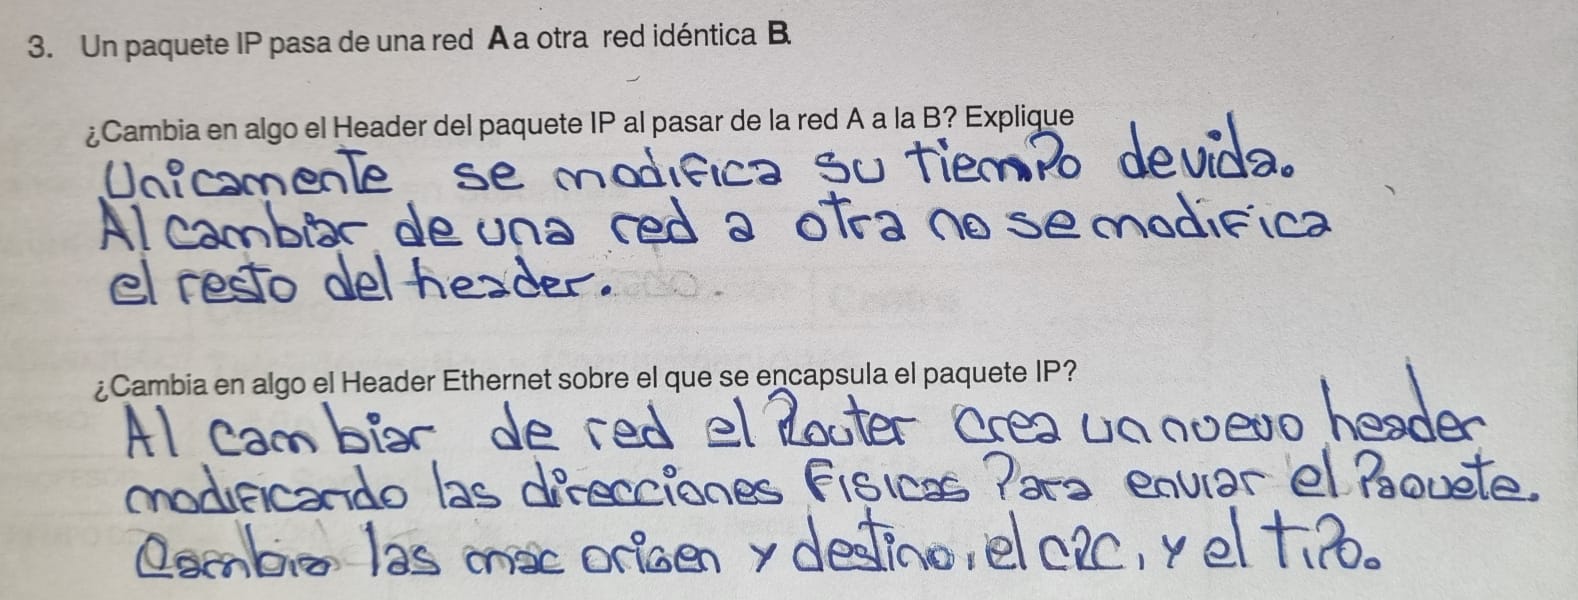 3. Un paquete IP pasa de una red A a otra red idéntica B.
¿Cambia en algo el Header del paquete IP al pasar de la red A a la B? Explique
Unicamente se modifica su tiempo de vida.
Al cambiar de una red a otra no se modifica
el resto del header.
¿Cambia en algo el Header Ethernet sobre el que se encapsula el paquete IP?
Al cambiar de red el Router crea un nuevo header
modificando las direcciones fisicas para enviar el Paquete.
Cambia las mac origen y destino, el CRC, y el tipo.